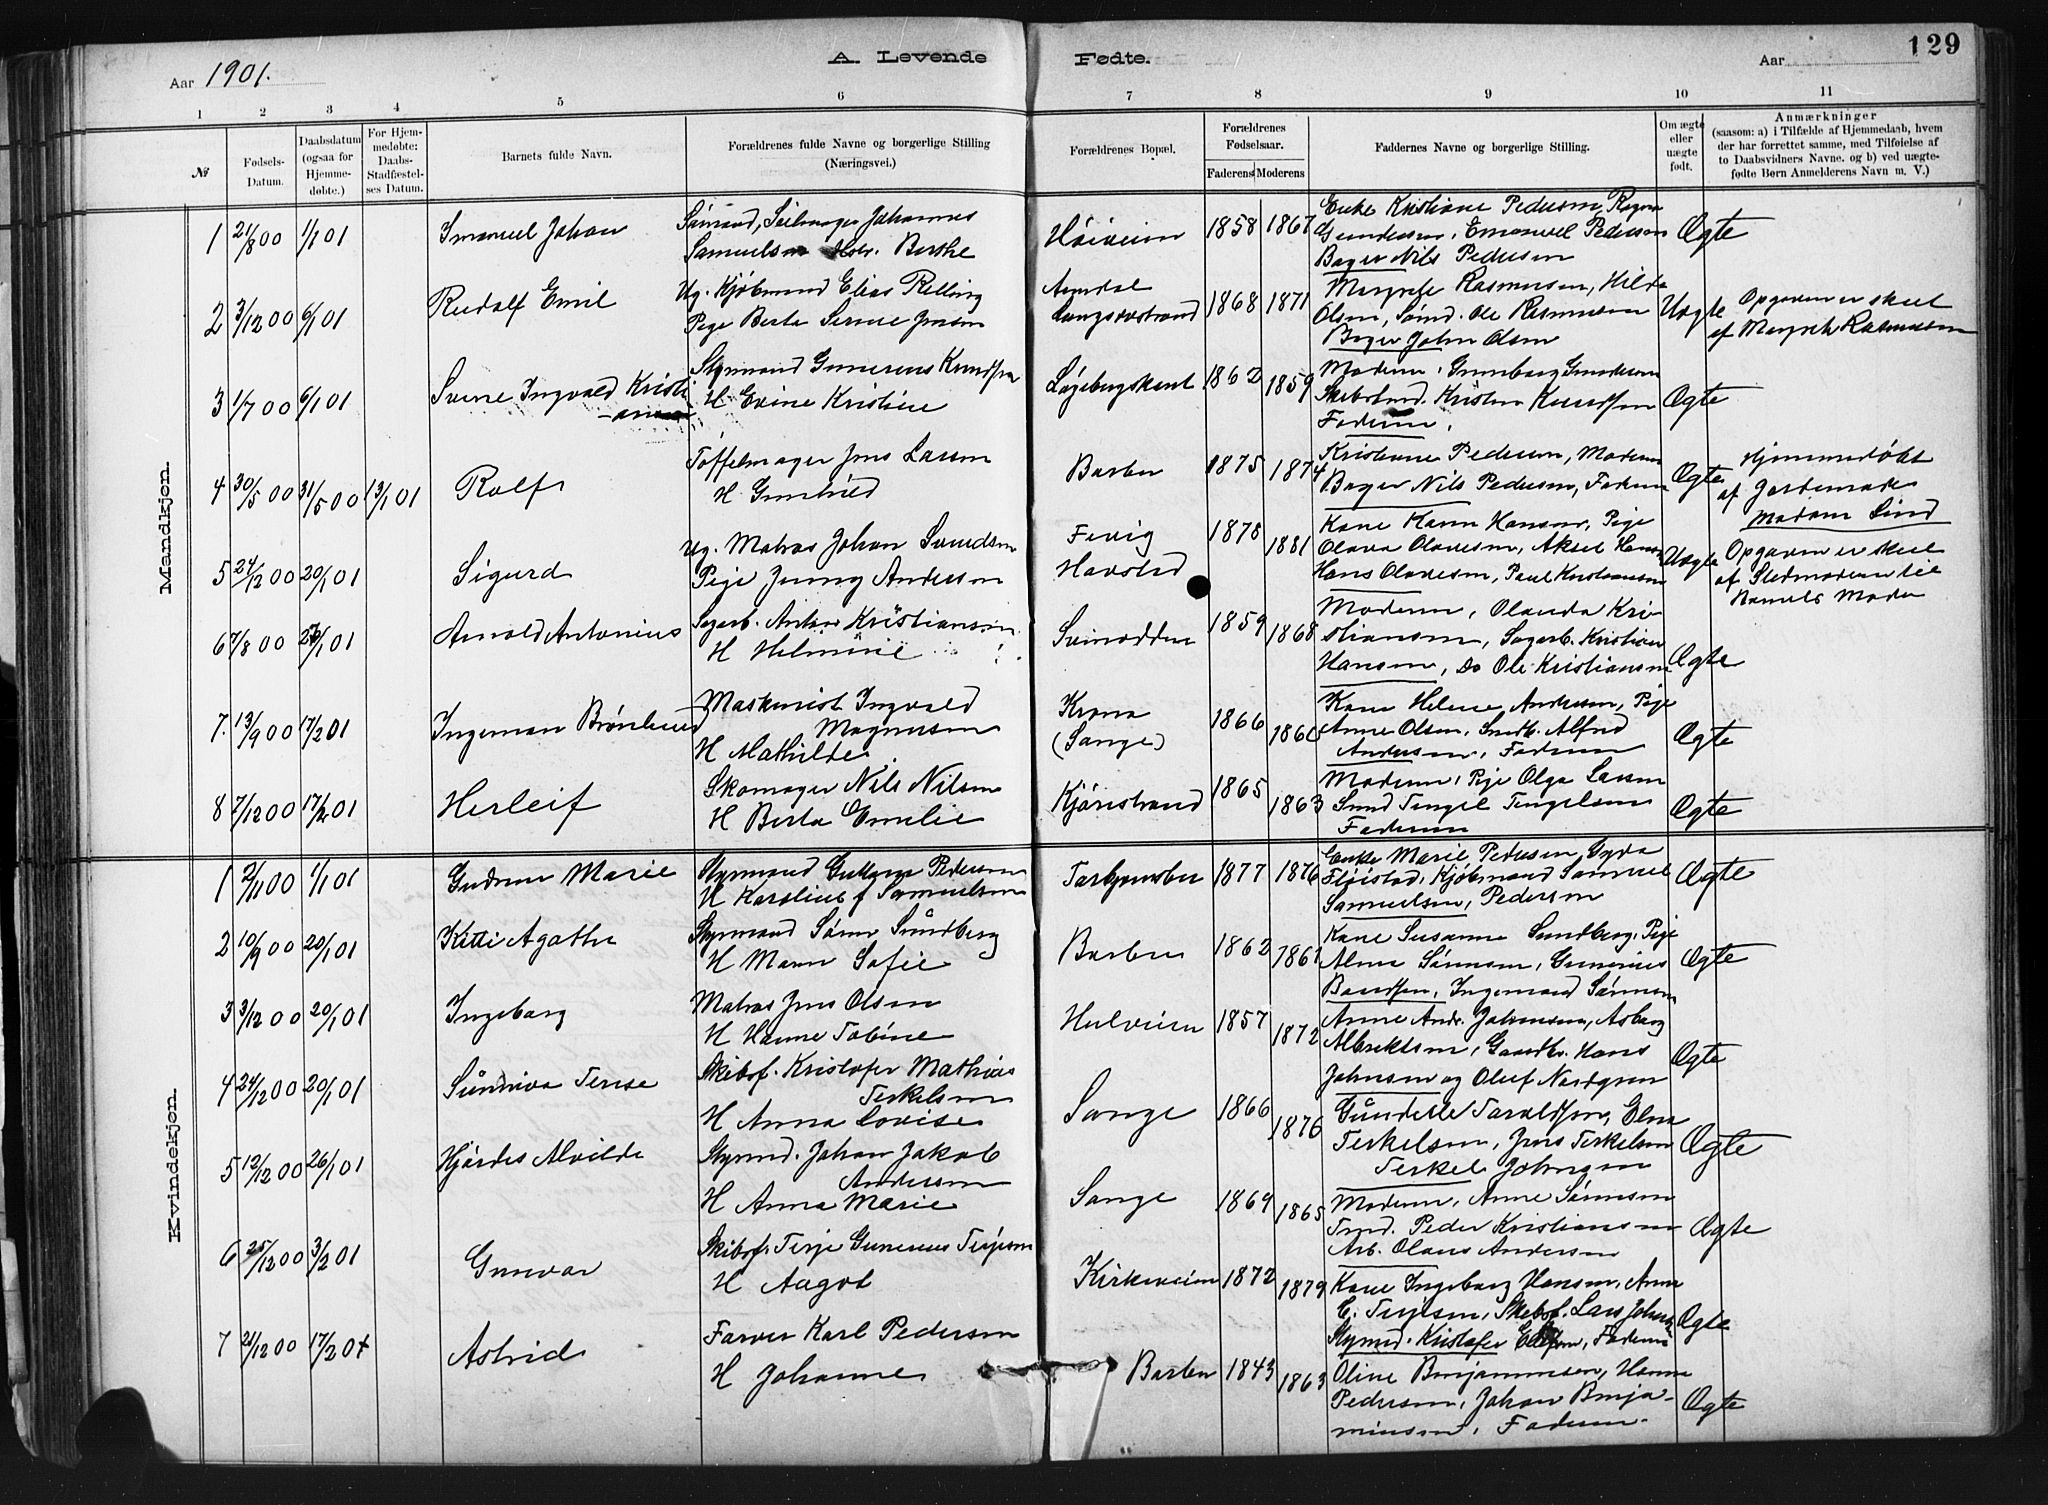 129
Aar 1901.
A. Levende Fødte.
Aar
1 2 3 4 5 6 7 8 9 10 11
№
Fødsels-
Datum.
Daabsdatum
(ogsaa for
Hjemme-
døbte.)
For Hjem-
medøbte:
Daabs-
Stadfæstel-
ses Datum.
Barnets fulde Navn.
Forældrenes fulde Navne og borgerlige Stilling
(Næringsvei.)
Forældrenes Bopæl.
Forældrenes
Fødselsaar.
Faderens Moderens
Faddernes Navne og borgerlige Stilling.
Om ægte
eller
uægte
født.
Anmærkninger
(saasom: a) i Tilfælde af Hjemmedaab, hvem
der har forrettet samme, med Tilføielse af
to Daabsvidners Navne. og b) ved uægte-
fødte Børn Anmelderens Navn m. V.)
Mandkjøn.
1 21/8 00 1/1 01 Imanuel Johan
Sømand, Seilmager Johannes
Samuelsen Hstr. Berthe
Høiveien 1858 1867
Enke Kristiane Pedersen, Ragna
Gundersen, Emanuel Pedersen
Bager Nils Pedersen
Ægte
2 3/12 00 6/1 01 Rudolf Emil
Ug. Kjøbmand Elias Relling
Pige Berta Serine Jensen
Arendal
Langsævstrand 1868 1871
Margrete Rasmussen, Hilda
Olsen, Sømd. Ole Rasmussen
Bager John Olsen
Uægte
Opgaven er skeet
af Margrete Rasmussen
3 1/7 00 6/1 01 Svene Ingvald Kristi
anson
Styrmand Gunerius Knudsen
H Evine Kristine
Løgebergskant 1862 1859
Moderen, Gunborg Gundersen
Skibstmd. Kristen Knudsen
Faderen.
Ægte
4 30/5 00 31/5 00 13/1 01 Rolf
Tøffelmager Jens Larsen
H Gunhild
Barbu 1875 1874
Kristiane Pedersen, Moderen
Bager Nils Pedersen, Faderen
Ægte
Hjemmedøbt
af Jordemoder
Madam Lind
5 24/12 00 20/1 01 Sigurd
Ug. Matros Johan Svendsen
Pige Jenny Andersen
Fevig
Havsted 1878 1881
Kone Karen Hansen, Pige
Olava Olavesen, Aksel Hansen
Hans Olavesen, Paul Kristiansen
Uægte
Opgaven er skeet
af Stedmoderen til
Barnets Moder
6 7/8 00 27/1 01 Arnold Antonius
Sagarb. Anton Kristiansen
H Helmine
Svinodden 1859 1868
Moderen, Olanda Kri-
stiansen, Sagarb. Kristian
Hansen, Do Ole Kristiansen
Ægte
7. 13/9 00 17/2 01 Ingeman Brønlund
Maskinist Ingvald
Magnussen
H Mathilde
Krona
(Songe) 1866 1860
Kone Helene Andersen, Pige
Anne Olsen, Snedk. Alfred
Andersen, Faderen
Ægte
8 7/12 00 17/2 01 Herleif
Skomager Nils Nilsen
H Berta Emelie
Kjønstrand 1865 1863
Moderen, Pige Olga Larsen
Smed Tengel Tengelsen
Faderen
Ægte
Kvindekjøn.
1 2/11 00 1/1 01 Gudrun Marie
Styrmand Guttorm Pedersen
H Karoline f Samuelsen
Torbjørnsbu 1877 1876
Enke Marie Pedersen, Gyda
Fløistad, Kjøbmand Samuel
Samuelsen, Pedersen
Ægte
2 10/9 00 20/1 01 Kitti Agathe
Styrmand Søren Sundberg
H Maren Sofie
Barbu 1862 1861
Kone Susanne Sundberg, Pige
Alma Sørensen, Gunerius
Baardsen, Ingemand Sørensen
Ægte
3 3/12 00 20/1 01 Ingeborg
Matros Jens Olsen
H Hanne Tobine
Hulveien 1857 1872
Anne Andr. Johansen, Asborg
Albriktsen, Gaardbr. Hans
Johnsen og Oluf Nordgren
Ægte
4 24/12 00 20/1 01 Sunniva Terese
Skibsf. Kristofer Mathias
Terkelsen
H Anna Lovise
Songe 1866 1876
Gunhilde Taraldsen, Elna
Terkelsen, Jens Terkelsen
Terkel Johnsen
Ægte
5 12/12 00 26/1 01 Hjørdis Alvilde
Styrmd. Johan Jakob
Andersen
H Anna Marie
Songe 1869 1865
Moderen, Anne Sørensen
Tmd. Peder Kristiansen
Arb. Olaus Andersen
Ægte
6 25/12 00 3/2 01 Gunvor
Skibsf. Terje Gunerius Terjesen
H Aagot
Kirkeveien 1872 1879
Kone Ingeborg Hansen, Anna
C. Terjesen, Skibsf. Lars Johnsen
Styrmd. Kristofer Ellefsen, Faderen
Ægte
7 21/12 00 17/2 01 Astrid
Farver Karl Pedersen
H Johanne
Barbu 1843 1863
Oline Benjaminsen, Hanna
Pedersen, Johan Benja-
minsen, Faderen.
Ægte